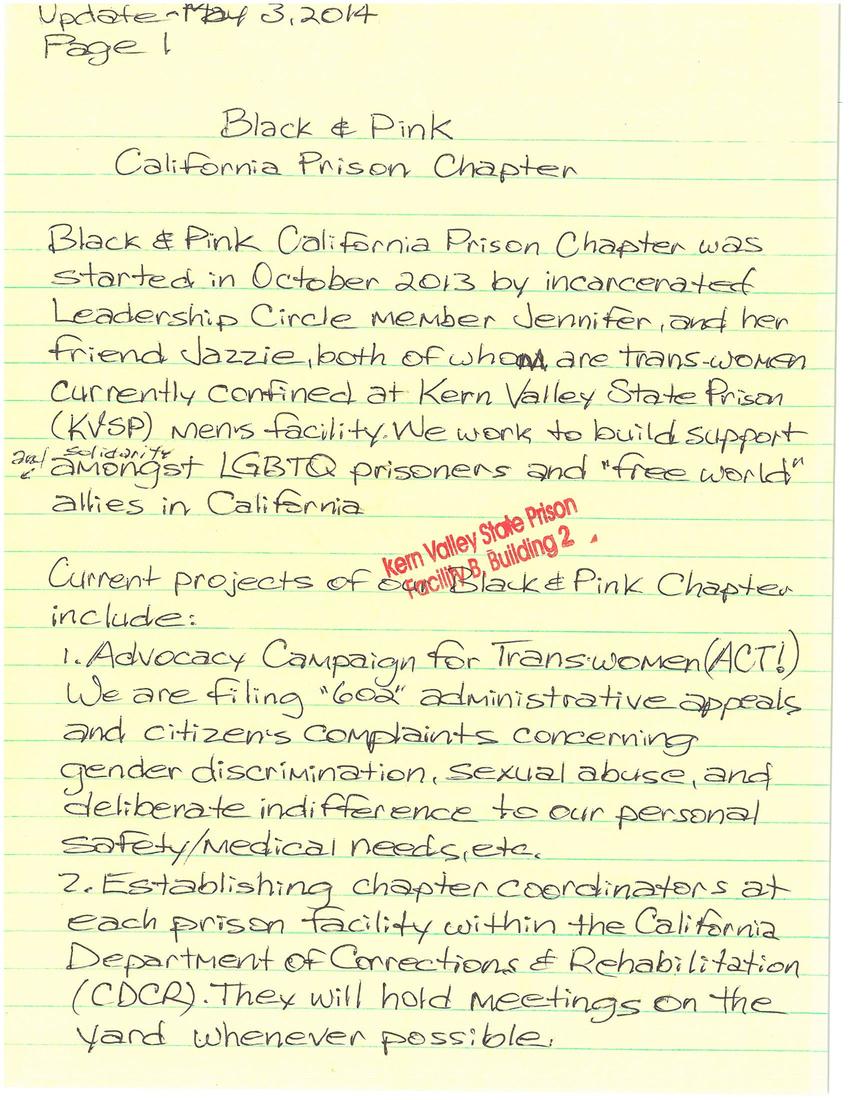 Update-May 3, 2014
Page 1
Black & Pink
California Prison Chapter
Black & Pink California Prison Chapter was
started in October 2013 by incarcerated
Leadership Circle member Jennifer, and her
friend Jazzie, both of whom are trans-women
currently confined at Kern Valley State Prison
(KVSP) men's facility. We work to build support
and solidarity
amongst LGBTQ prisoners and "free world"
allies in California
Kern Valley State Prison
Facility B, Building 2
Current projects of our Black & Pink Chapter
include:
1. Advocacy Campaign for Trans-women (ACT!)
We are filing "602" administrative appeals
and citizen's complaints concerning
gender discrimination, sexual abuse, and
deliberate indifference to our personal
safety/medical needs, etc.
2. Establishing chapter coordinators at
each prison facility within the California
Department of Corrections & Rehabilitation
(CDCR). They will hold meetings on the
yard whenever possible.